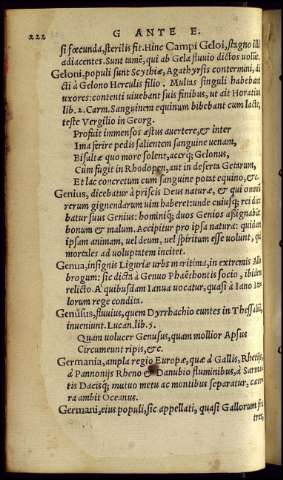 222 G ANTE E.
si fœcunda, sterilis fit. Hinc Campi Geloi, stagno illi
adiacentes. Sunt tamẽ, qui ab Gela fluuio dictos volũt.
Geloni, populi sunt Scythiæ, Agathyrsis contermini, di
cti à Gelono Herculis filio. Multas singuli habebant
vxores: contenti viuebant suis finibus, ut ait Horatius
lib. 2. Carm. Sanguinem equinum bibebant cum lacte,
teste Vergilio in Georg.
Profuit immensos æstus auertere, & inter
Ima ferire pedis salientem sanguine venam,
Bisaltæ quo more solent, acerq; Gelonus,
Cum fugit in Rhodopen, aut in deserta Getarum,
Et lac concretum cum sanguine potat equino, &c.
Genius, dicebatur à priscis Deus naturæ, & qui omni
rerum gignendarum vim haberet: unde cuiusq; rei dice
batur suus Genius: hominiq; duos Genios aßignabãt
bonum & malum. Accipitur pro ipsa natura: quidam
ipsam animam, uel deum, uel spiritum esse uolunt, qui
mortales ad uoluptatem incitet.
Genua, insignis Liguriæ urbs maritima, in extremis Allo
brogum: sic dicta à Genuo Phaëthontis socio, ibidem
relicto. A' quibusdam Ianua vocatur, quasi à Iano Ita
lorum rege condita.
Genusus, fluuius, quem Dyrrhachio euntes in Thessaliã,
inueniunt. Lucan. lib. 5.
Quam volucer Genusus, quam mollior Apsus
Circumeunt ripis, &c.
Germania, ampla regio Europæ, quæ à Gallis, Rhetijs,
à Pannonijs Rheno & Danubio fluminibus, à Sarma
tis Dacisq; mutuo metu ac montibus separatur, cætera
ambit Oceanus.
Germani, eius populi, sic appellati, quasi Gallorum fra
tres,